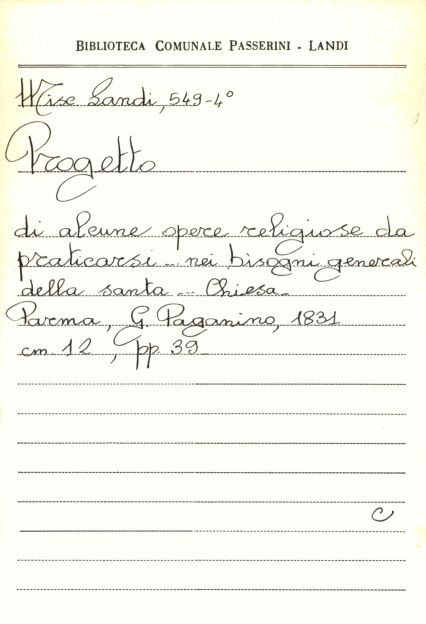 BIBLIOTECA COMUNALE PASSERINI - LANDI
Misc Landi, 549-4°
Progetto
di alcune opere religiose da
praticarsi ... nei bisogni generali
della santa ... Chiesa.
Parma, G. Paganino, 1831
cm. 12, pp. 39
C